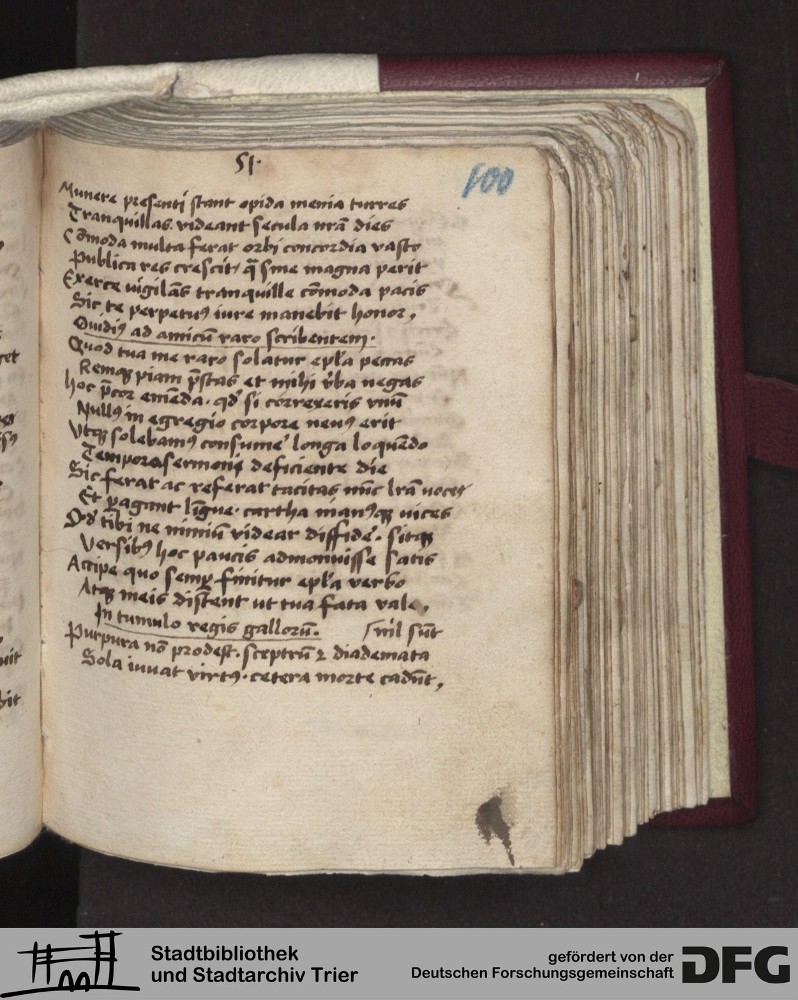 51·
100
Munere presenti stant opida menia turres
Tranquillas videant secula nr̄a dies
Cōmoda multa ferat orbi concordia vasto
Publica res crescit, q̄ sine magna perit
Exerce vigilās tranquille cōmoda pacis
Sic te perpetuꝰ iure manebit honor,
Ouidiꝰ ad amicū raro scribentem·
Quod tua me raro solatur epl̄a peccas
Remqꝫ piam p̄stas et mihi v̄ba negas
hoc p̄cor emēda· qd̓ si correxeris vnū
Nullꝰ in egregio corpore neuꝰ erit
Vtqꝫ solebamꝰ consume᷒ longa loquēdo
Tempora sermonis deficiente die
Sic ferat ac referat tacitas nūc lr̄a voces
Et ꝑagant līgue· cartha manꝰqꝫ vices
Qd̓ tibi ne nimiū videar diffide᷒· sitqꝫ
Versibꝰ hoc paucis admonuisse satis
Accipe quo semꝑ finitur epl̄a verbo
Atqꝫ meis distent ut tua fata vale,
In tumulo regis gallorū.
nil sūt
Purpura nō prodest· sceptrū ⁊ diademata
Sola iuuat virtꝰ· cetera morte cadūt,
uit
Stadtbibliothek
und Stadtarchiv Trier
gefördert von der
Deutschen Forschungsgemeinschaft
DFG